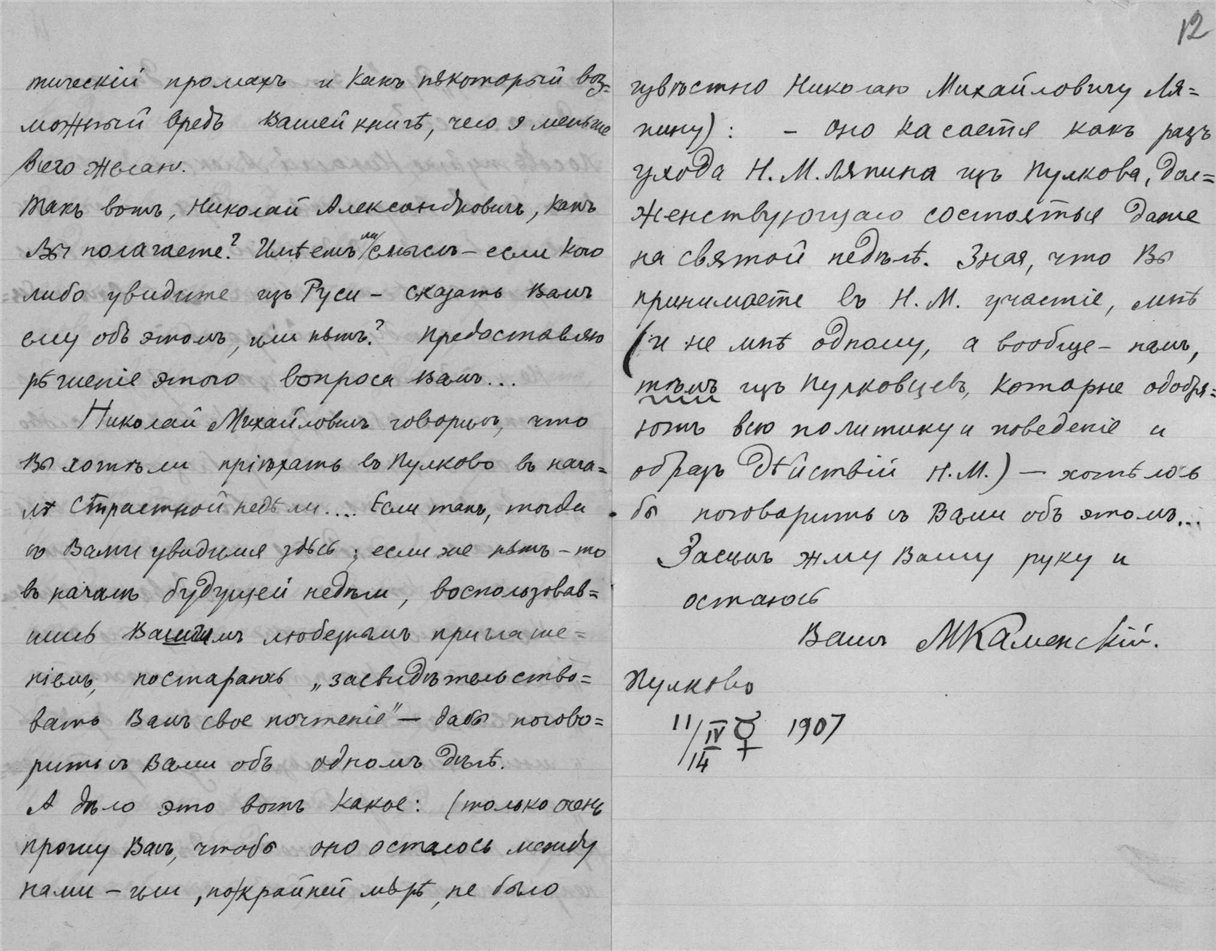 тическiй промахъ и какъ нѣкоторый воз=
можный вредъ Вашей книгѣ, чего я меньше
всего желаю.
Такъ вотъ, Николай Александровичъ, какъ
Вы полагаете? Имѣетъ ли смыслъ – если кого
либо увидите изъ Руси – сказать Вамъ
ему объ этомъ, или нѣтъ? Предоставляю
рѣшенiе этого вопроса Вамъ...
Николай Михайловичъ говорилъ, что
Вы хотѣли прiѣхать въ Пулково въ нача=
лѣ Страстной недѣли.... Если такъ, тогда
съ Вами увидимся здѣсь; если же нѣтъ – то
въ началѣ будущей недѣли, воспользовав=
шись Вашимъ любезнымъ приглаше=
нiемъ, постараюсь „засвидѣтельство=
вать Вамъ свое почтенiе" – дабы погово=
рить съ Вами объ одномъ дѣлѣ.
А дѣло это вотъ какое: (только очень
прошу Васъ, чтобы оно осталось между
нами – или, по крайней мѣрѣ, не было
12
извѣстно Николаю Михайловичу Ля=
пину): – оно касается какъ разъ
ухода Н. М. Ляпина изъ Пулкова, дол=
женствующаго состояться даже
на святой недѣлѣ. Зная, что Вы
принимаете въ Н. М. участiе, мнѣ
(и не мнѣ одному, а вообще – намъ,
тѣмъ изъ Пулковцевъ, которые одобря=
ютъ всю политику и поведенiе и
образъ дѣйствiй Н. М.) – хотѣлось
бы поговорить съ Вами объ этомъ...
Засимъ жму Вашу руку и
остаюсь
Вашъ МКаменскiй.
Пулково
11/IV/14 ☿ 1907